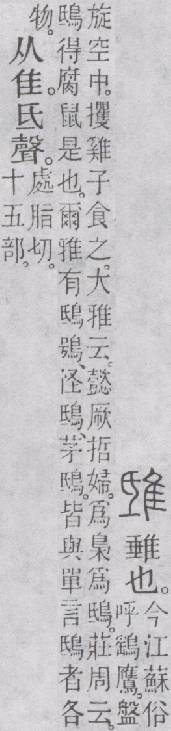 䧳 䧴也。今江蘇俗
呼鷂鷹。盤
旋空中。攫雞子食之。大雅云。懿厥哲婦。爲梟爲鴟。莊周云。
鴟得腐鼠是也。爾雅有鴟鴞、怪鴟、茅鴟。皆與單言鴟者各
物。从隹。氐聲。處脂切。
十五部。